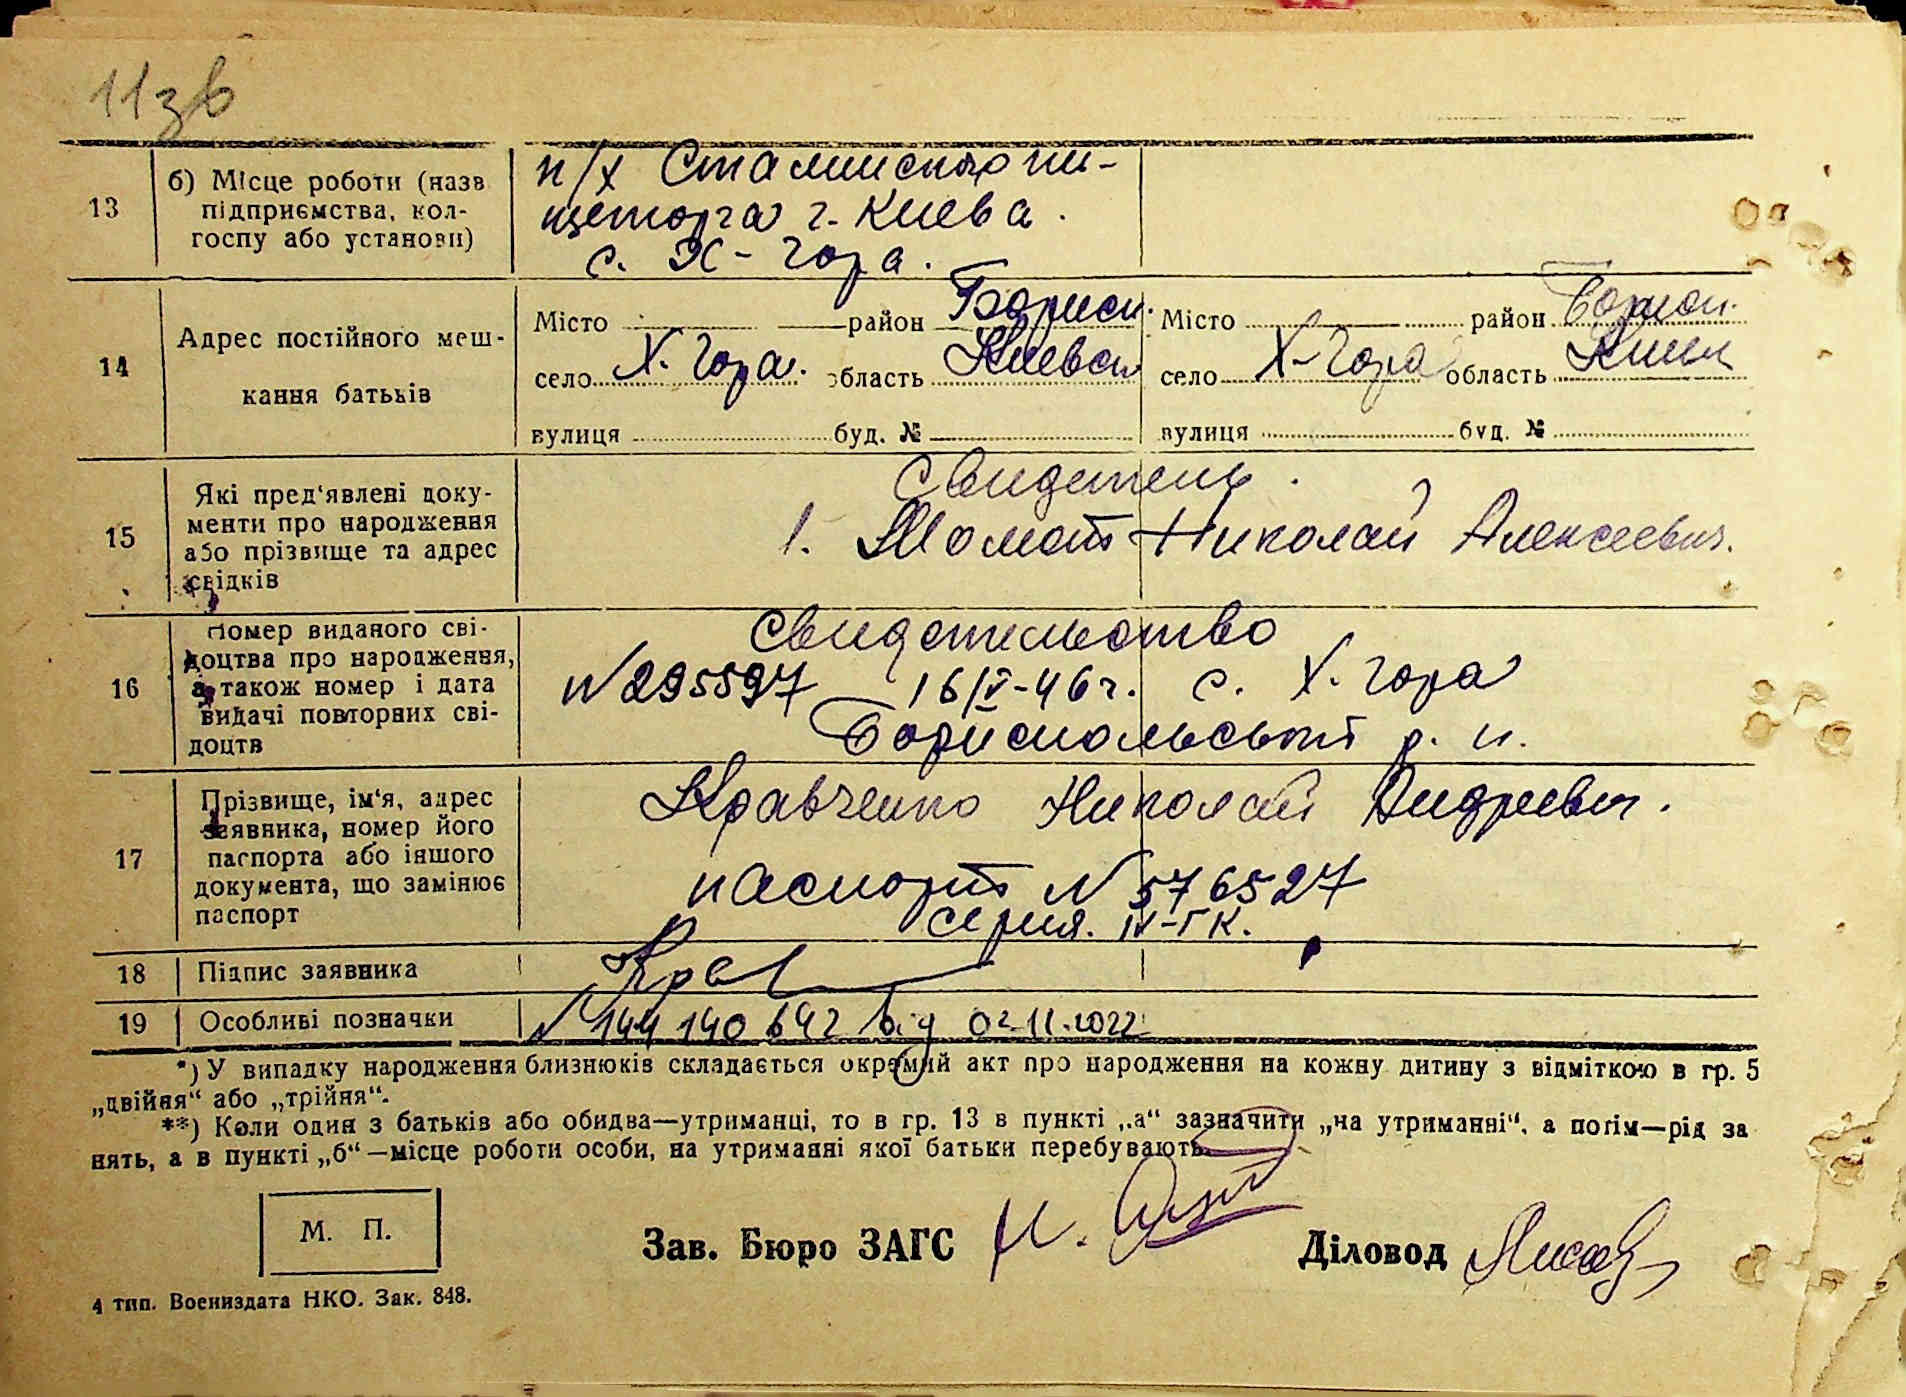 11зв
13
б) Місце роботи (назв
підприємства, кол-
госпу або установи)
п/х Сталинского пи-
щеторга г. Киева.
с. Х-Гора.
14
Адрес постійного меш-
кання батьків
Місто район Борисп.
село Х. Гора. область Киевск
вулиця буд. №
Місто район Борисп.
село Х-Гора область Киев
вулиця буд. №
15
Які пред'явлені доку-
менти про народження
або прізвище та адрес
свідків
Свидетель.
1. Николай Алексеевич.
16
Номер виданого сві-
доцтва про народження,
а також номер і дата
видачі повторних сві-
доцтв
Свидетельство
N 295597 16/V-46 г. с. Х. Гора
Бориспольский р. н.
17
Прізвище, ім'я, адрес
заявника, номер його
паспорта або іншого
документа, що замінює
паспорт
Кравченко Николай Андреевич.
паспорт N 576527
серия. IV-ГК.
18 Підпис заявника
Крав
19 Особливі позначки
N 144 140 642 від 02.11.2022
*) У випадку народження близнюків складається окремий акт про народження на кожну дитину з відміткою в гр. 5
„двійня" або „трійня".
**) Коли один з батьків або обидва—утриманці, то в гр. 13 в пункті „а" зазначити „на утриманні", а потім—рід за
нять, а в пункті „б"—місце роботи особи, на утриманні якої батьки перебувають
М. П.
Зав. Бюро ЗАГС
Діловод
4 тип. Воениздата НКО. Зак. 848.